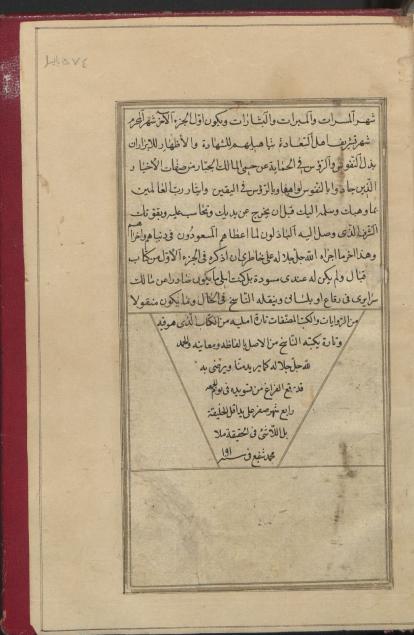 شهر المسرات والمبرات والبشارات ويكون اول الجزء الآخر شهر المحرم
شهر تشريف اهل السعادة بتاهيلهم للشهادة والاظهار للابرار ان
بذل النفوس والرؤس في الحماية عن حمى المالك الجبار من صفات الاخيار
الذين جادوا بالنفوس لواهبها وبالرؤس في اليقين وايثار رب العالمين
بما وهبك وسلمه اليك قبل ان يخرج عن يديك وتحاسب عليه ويفوتك
الشرف الذي وصل اليه الباذلون لما اعطاهم المسعودون في دنياهم واخراهم
وهذا اخر ما اجراه الله جل جلاله على خاطري ان اذكره في الجزء الاول من كتاب
قبال ولم يكن له عندي مسودة بل كنت املي ما يكون صادرا عن مالك
سرايري في رقاع او بلساني وينقله الناسخ في الحال وما يكون منقولا
من الروايات والكتب المصنفات تارة امليه من الكتاب الذي هو فيه
وتارة يكتبه الناسخ من الاصل بالفاظه ومعانيه والحمد
لله جل جلاله كما يريد منا ويرتضى به
قد وقع الفراغ من تسويده في يوم
رابع شهر صفر على يد اقل الخليقة
بل اللاشئ في الحقيقة ملا
محمد شفيع في سنة